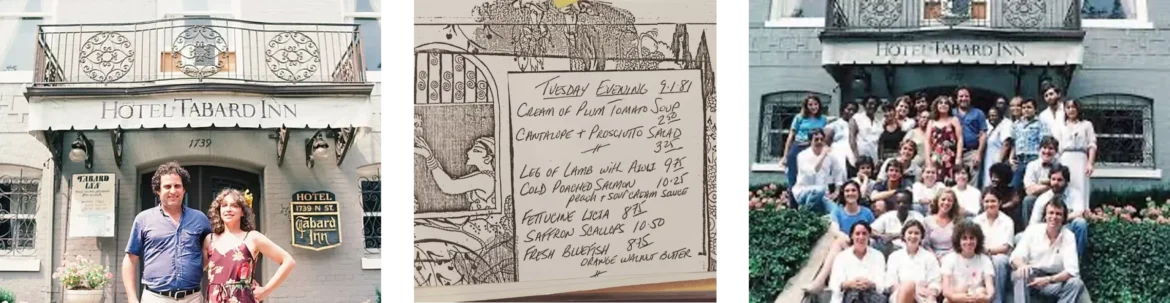 HOTEL TABARD INN
1739
TABARD
INN
HOTEL
1739 N ST.
Tabard
Inn
TUESDAY EVENING 9·1·81
CREAM OF PLUM TOMATO SOUP
2 50
CANTALOPE + PROSCIUTTO SALAD
3 25
LEG OF LAMB WITH AIOLI 9 75
COLD POACHED SALMON 10·25
PEACH + SOUR CREAM SAUCE
FETTUCINE LICIA 8 75
SAFFRON SCALLOPS 10·50
FRESH BLUEFISH 8 75
ORANGE WALNUT BUTTER
HOTEL TABARD INN